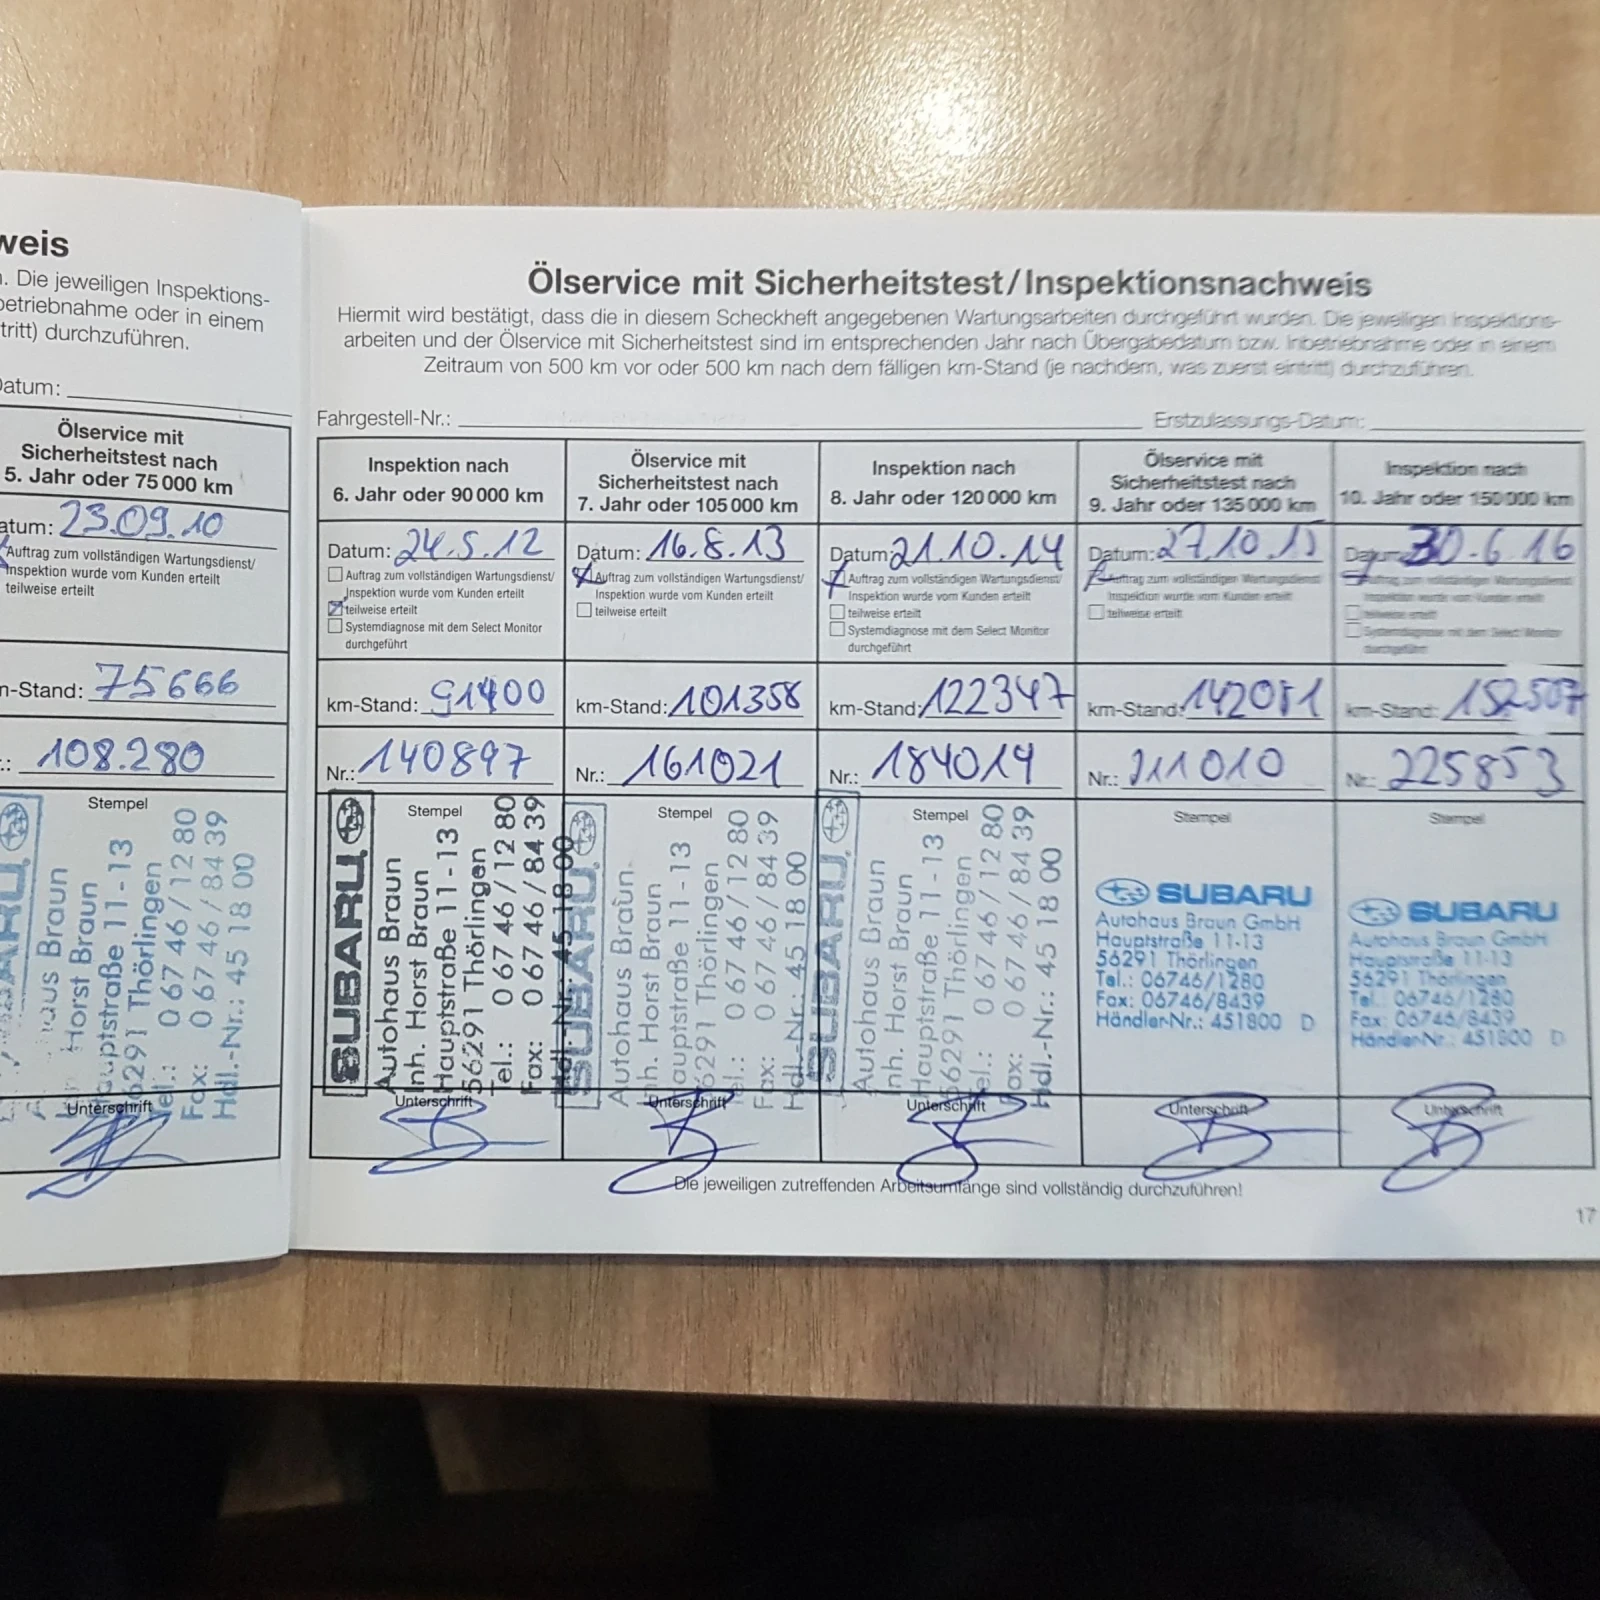 weis
. Die jeweiligen Inspektions-
betriebnahme oder in einem
tritt) durchzuführen.
Datum:
Ölservice mit
Sicherheitstest nach
5. Jahr oder 75 000 km
atum: 23.09.10
Auftrag zum vollständigen Wartungsdienst/
Inspektion wurde vom Kunden erteilt
teilweise erteilt
n-Stand: 75666
.: 108.280
Stempel
Horst Braun
Hauptstraße 11 - 13
56291 Thörlingen
Tel.: 0 67 46 / 12 80
Fax: 0 67 46 / 84 39
Hdl.-Nr.: 45 18 00
Unterschrift
Ölservice mit Sicherheitstest/Inspektionsnachweis
Hiermit wird bestätigt, dass die in diesem Scheckheft angegebenen Wartungsarbeiten durchgeführt wurden. Die jeweiligen Inspektions-
arbeiten und der Ölservice mit Sicherheitstest sind im entsprechenden Jahr nach Übergabedatum bzw. Inbetriebnahme oder in einem
Zeitraum von 500 km vor oder 500 km nach dem fälligen km-Stand (je nachdem, was zuerst eintritt) durchzuführen.
Fahrgestell-Nr.:
Erstzulassungs-Datum:
Inspektion nach
6. Jahr oder 90 000 km
Datum: 24.5.12
Auftrag zum vollständigen Wartungsdienst/
Inspektion wurde vom Kunden erteilt
teilweise erteilt
Systemdiagnose mit dem Select Monitor
durchgeführt
km-Stand: 91400
Nr.: 140897
Stempel
SUBARU
Autohaus Braun
Inh. Horst Braun
Hauptstraße 11 - 13
56291 Thörlingen
Tel.: 0 67 46 / 12 80
Fax: 0 67 46 / 84 39
Hdl.-Nr.: 45 18 00
Unterschrift
Ölservice mit
Sicherheitstest nach
7. Jahr oder 105 000 km
Datum: 16.8.13
Auftrag zum vollständigen Wartungsdienst/
Inspektion wurde vom Kunden erteilt
teilweise erteilt
km-Stand: 101358
Nr.: 161021
Stempel
SUBARU
Autohaus Braun
Inh. Horst Braun
Hauptstraße 11 - 13
56291 Thörlingen
Tel.: 0 67 46 / 12 80
Fax: 0 67 46 / 84 39
Hdl.-Nr.: 45 18 00
Unterschrift
Inspektion nach
8. Jahr oder 120 000 km
Datum: 21.10.14
Auftrag zum vollständigen Wartungsdienst/
Inspektion wurde vom Kunden erteilt
teilweise erteilt
Systemdiagnose mit dem Select Monitor
durchgeführt
km-Stand: 122347
Nr.: 184014
Stempel
SUBARU
Autohaus Braun
Inh. Horst Braun
Hauptstraße 11 - 13
56291 Thörlingen
Tel.: 0 67 46 / 12 80
Fax: 0 67 46 / 84 39
Hdl.-Nr.: 45 18 00
Unterschrift
Ölservice mit
Sicherheitstest nach
9. Jahr oder 135 000 km
Datum: 27.10.15
Auftrag zum vollständigen Wartungsdienst/
Inspektion wurde vom Kunden erteilt
teilweise erteilt
km-Stand: 142081
Nr.: 211010
Stempel
SUBARU
Autohaus Braun GmbH
Hauptstraße 11-13
56291 Thörlingen
Tel.: 06746/1280
Fax: 06746/8439
Händler-Nr.: 451800 D
Unterschrift
Inspektion nach
10. Jahr oder 150 000 km
Datum: 30.6.16
Auftrag zum vollständigen Wartungsdienst/
Inspektion wurde vom Kunden erteilt
teilweise erteilt
Systemdiagnose mit dem Select Monitor
durchgeführt
km-Stand: 152507
Nr.: 225853
Stempel
SUBARU
Autohaus Braun GmbH
Hauptstraße 11-13
56291 Thörlingen
Tel.: 06746/1280
Fax: 06746/8439
Händler-Nr.: 451800 D
Unterschrift
Die jeweiligen zutreffenden Arbeitsumfänge sind vollständig durchzuführen!
17